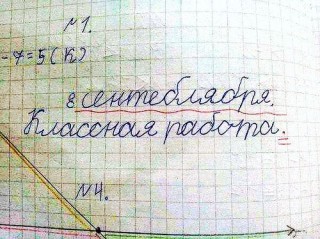 №1.
-7=5(К)
8 сентеблября.
Класеная работа.
№4.